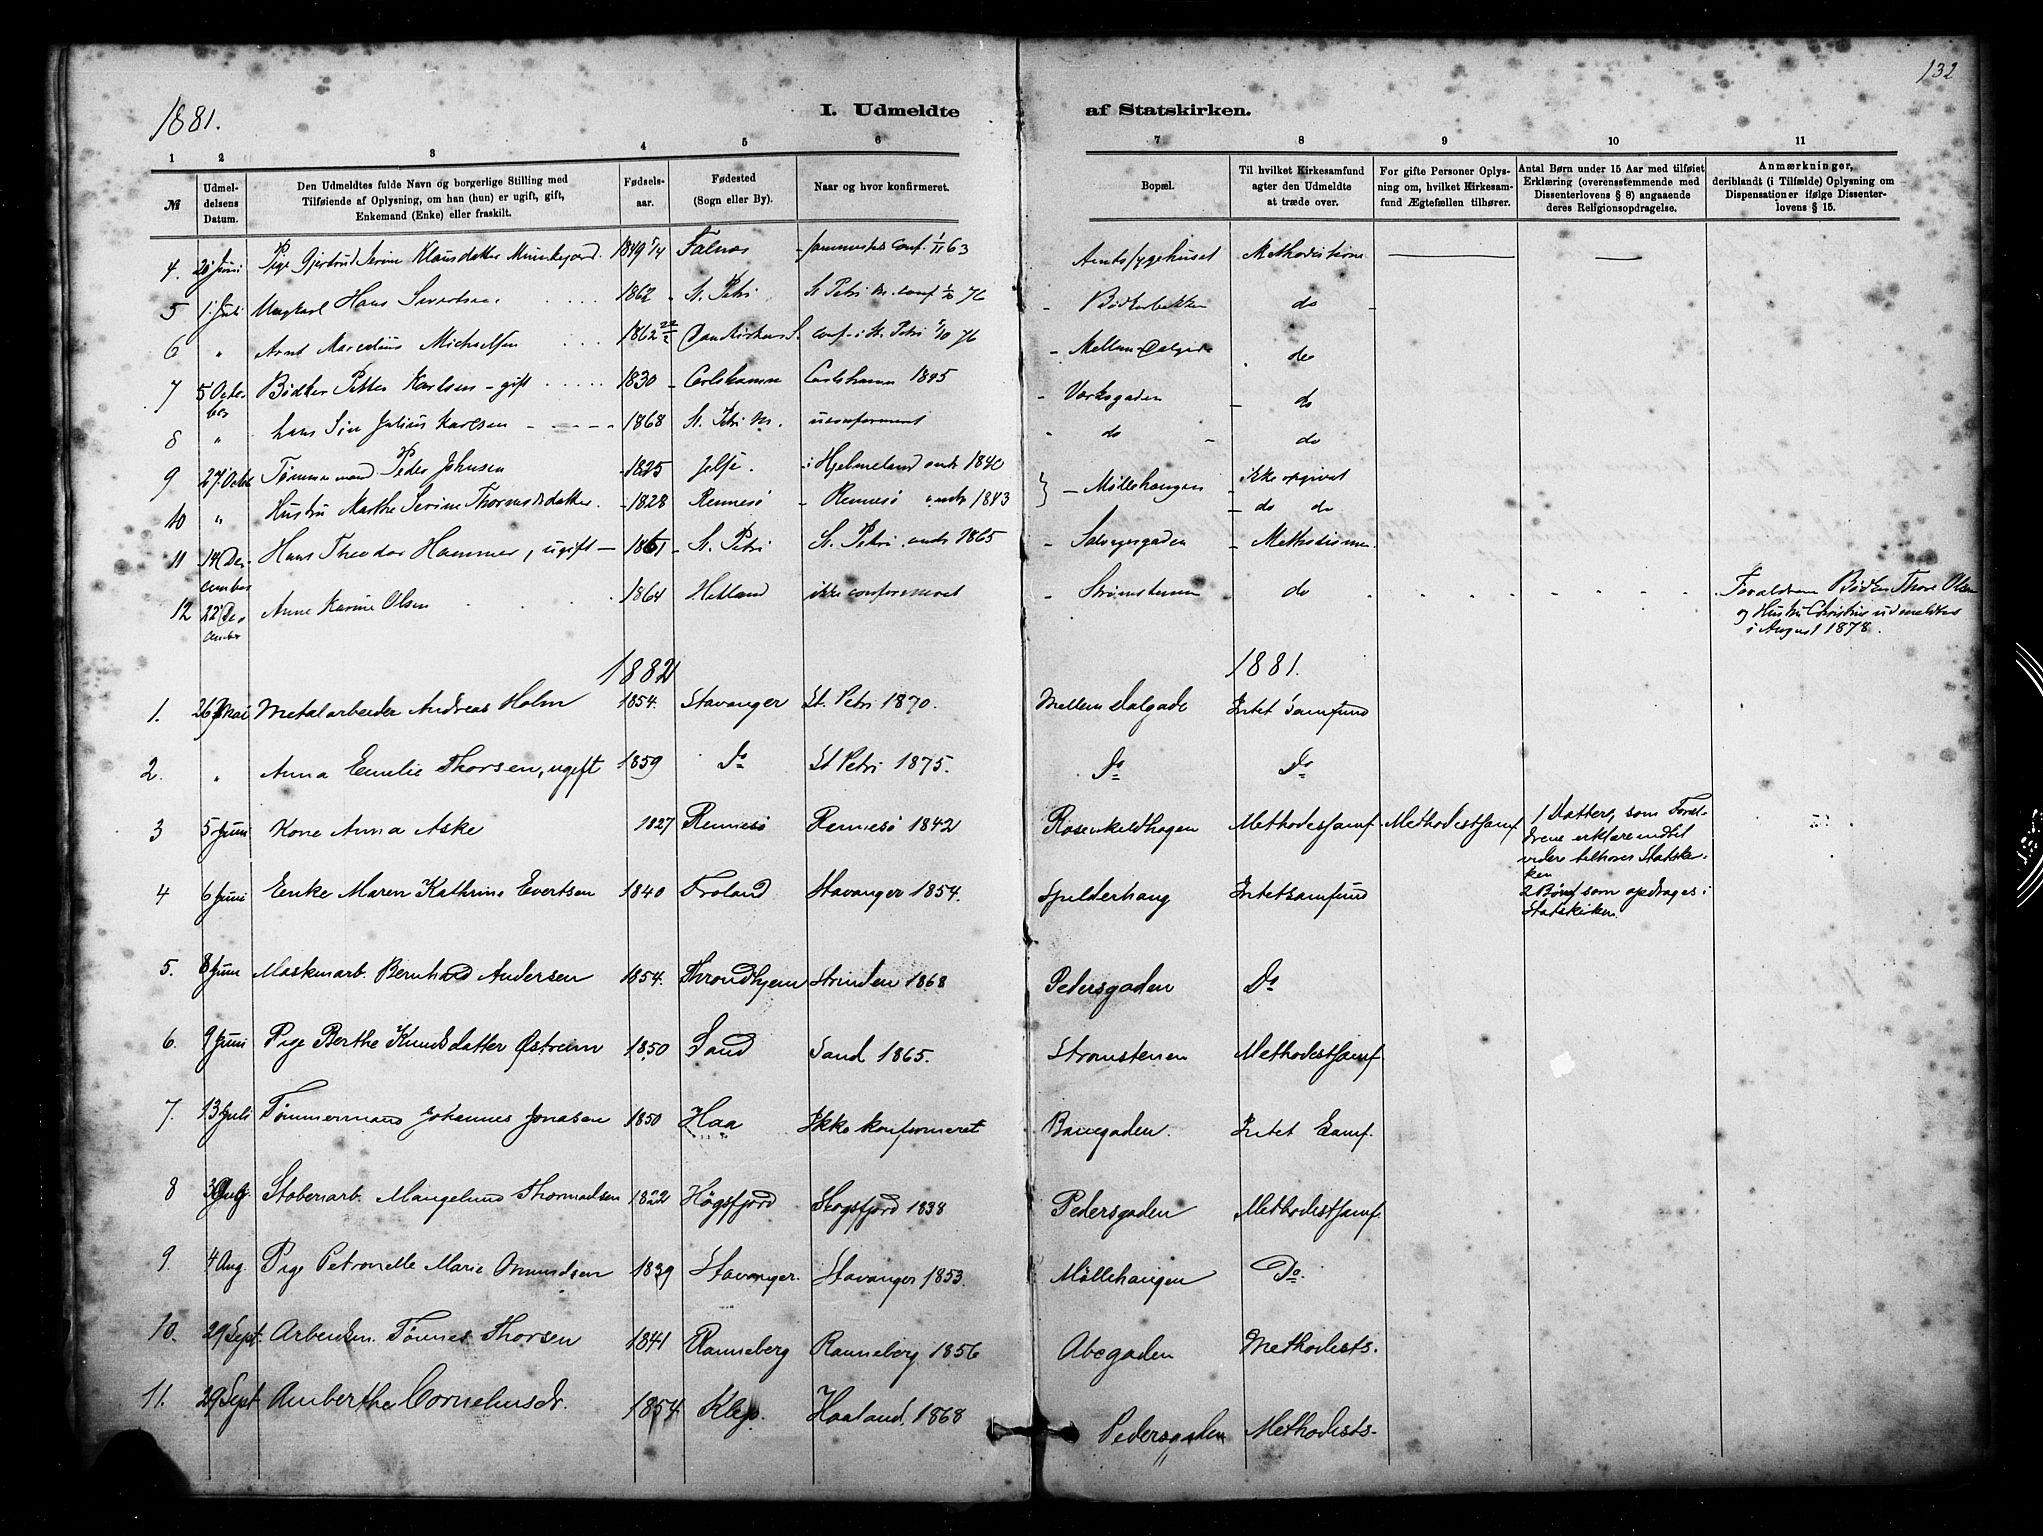 132
1881.
I. Udmeldte af Statskirken.
1 2 3 4 5 6 7 8 9 10 11
№ | Udmel-delsens Datum. | Den Udmeldtes fulde Navn og borgerlige Stilling med Tilføiende af Oplysning, om han (hun) er ugift, gift, Enkemand (Enke) eller fraskilt. | Fødsels-aar. | Fødested (Sogn eller By). | Naar og hvor konfirmeret. | Bopæl. | Til hvilket Kirkesamfund agter den Udmeldte at træde over. | For gifte Personer Oplys-ning om, hvilket Kirkesam-fund Ægtefællen tilhører. | Antal Børn under 15 Aar med tilføiet Erklæring (overensstemmende med Dissenterlovens § 8) angaaende deres Religionsopdragelse. | Anmærkninger, deriblandt (i Tilfælde) Oplysning om Dispensationer ifølge Dissenter-lovens § 15.
4. Juni Pige Gjertrud Serine Klausdatter 1849 Falnes conf. 1/11 63 Amtssygehuset Methodisterne
5 1 Juli Ungkarl Hans Sivertsen 1862 St. Petri St Petri conf 1/10 76 Bødkerbakken do
6 " Arnt Marcelius Michelsen 1862 conf. i St. Petri 1/10 76 Mellem Dalgade do
7 5 October Bødker Petter Karlsen - gift 1830 Carlshamn Carlshamn 1845 Verksgaden do
8 " hans Søn Julius Karlsen 1868 St. Petri M. uconfirmeret do do
9 27 Octbr Tømmermand Peder Johnsen 1825 Jelse. i Hjelmeland 1840 Møllehaugen ikke opgivet
10 " Hustru Marthe Serine Thormodsdatter 1828 Rennesø Rennesø 1843 do do
11 14 December Hans Theodor Hammer, ugift 1851 St. Petri St. Petri 1865 Methodisterne
12 22 December Anne Karine Olsen 1864 Hetland ikke confirmeret Strømstenen do Forældrene Bødker Thore Olsen
og Hustru Christine udmeldtes
i August 1878.
1882 1881.
1. 26 Mai Metalarbeider Andreas Holm 1854. Stavanger St. Petri 1870. Mellem Dalgade Intet Samfund
2. " Anna Emilie Thorsen, ugift 1859 Do St Petri 1875. Do Do
3 5 Juni Kone Anna Aske 1827 Rennesø Rennesø 1842 Rosenkildhagen Methodistsamf Methodistsamf 1 Datter, som Foræl-
drene erklære indtil
videre tilhører Statskir-
ken
4 6 Juni Enke Maren Kathrine Evertsen 1840 Froland Stavanger 1854. Spilderhaug Intetsamfund 2 Børn som opdrages i
Statskirken.
5. 8 Juni Maskinarb. Bernhard Andersen 1854. Throndhjem Strinden 1868 Pedersgaden Do
6. 9 Juni Pige Berthe Knudsdatter Østrem 1850 Sand Sand 1865. Strømstenen Methodistsamf
7. 13 Juli Tømmermand Johannes Jonasen 1850 Haa Ikke konfirmeret Banegaden. Intet Samf.
8 Støberiarb. Mangelius Thormodsen 1822 Høgsfjord Høgsfjord 1838 Pedersgaden Methodistsamf.
9. 4 Aug. Pige Petronelle Marie Omundsen 1839 Stavanger. Stavanger 1853. Møllehaugen Do.
10. 29 Sept. Arbeidsm. Tønnes Thorsen 1841 Ranneberg Ranneberg 1856 Abegaden Methodists.
11. 29 Sept Anberthe Corneliusdr. 1854 Klep. Haaland. 1868 Pedersgaden Methodists-